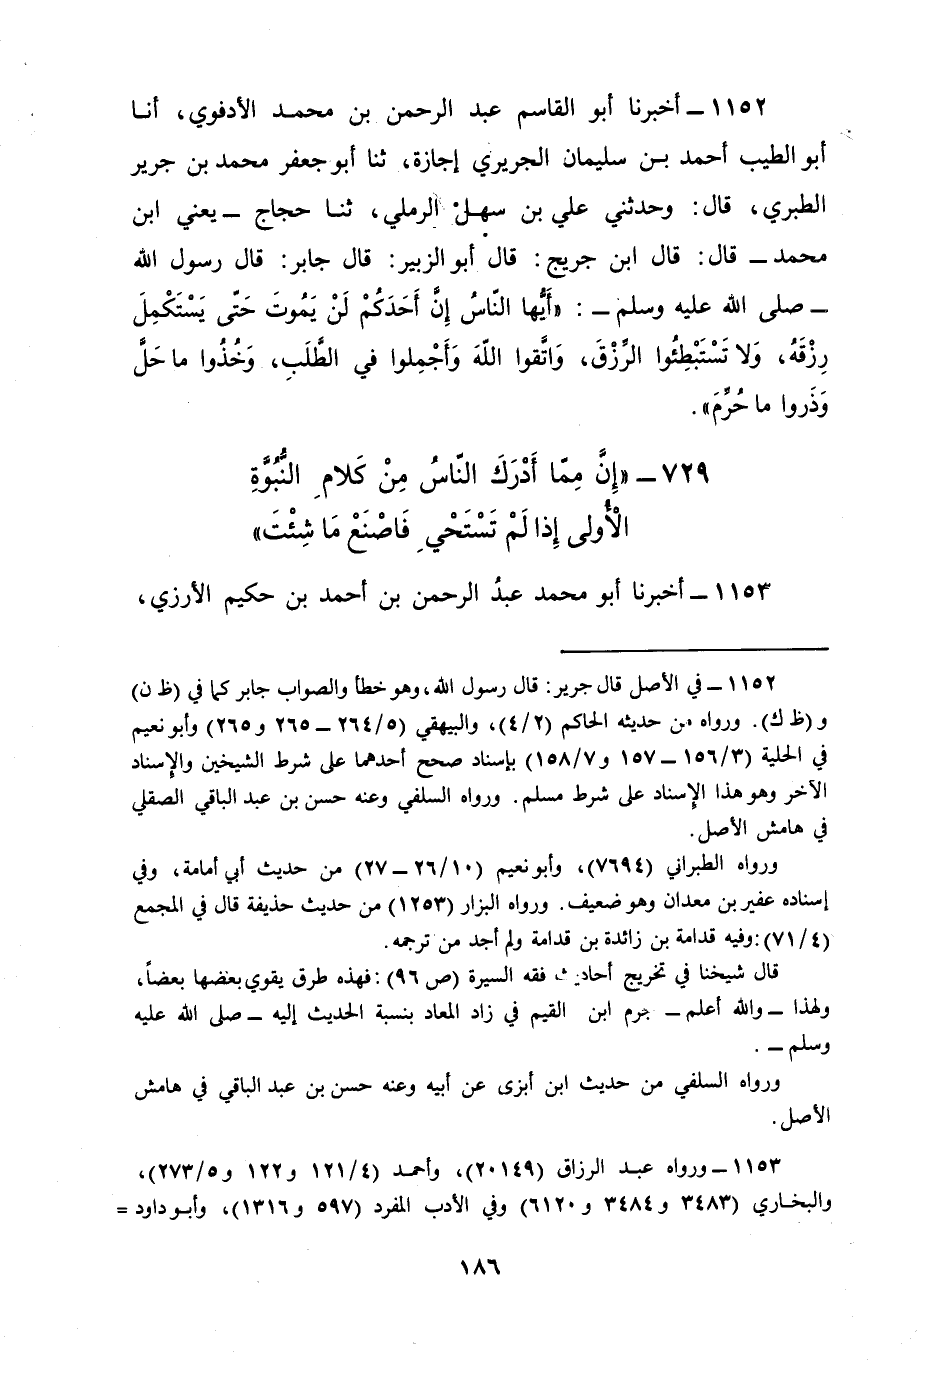 ١١٥٢ ـ أخبرنا أبو القاسم عبد الرحمن بن محمد الأدفوي، أنا
أبو الطيب أحمد بن سليمان الجريري إجازة، ثنا أبو جعفر محمد بن جرير
الطبري، قال: وحدثني علي بن سهل الرملي، ثنا حجاج ـ يعني ابن
محمد ـ قال: قال ابن جريج: قال أبو الزبير: قال جابر: قال رسول الله
ـ صلى الله عليه وسلم ـ : «أَيُّها النَّاسُ إِنَّ أَحَدَكُمْ لَنْ يَمُوتَ حَتَّى يَسْتَكْمِلَ
رِزْقَهُ، وَلا تَسْتَبْطِئُوا الرِّزْقَ، وَاتَّقوا اللَّهَ وَأَجْمِلوا في الطَّلَبِ، وَخُذُوا ما حَلَّ
وَذَروا ما حُرِّمَ».
٧٢٩ ـ «إِنَّ مِمَّا أَدْرَكَ النَّاسُ مِنْ كَلامِ النُّبُوَّةِ
الْأُولى إِذا لَمْ تَسْتَحْيِ فَاصْنَعْ مَا شِئْتَ»
١١٥٣ ـ أخبرنا أبو محمد عبدُ الرحمن بن أحمد بن حكيم الأرزي،
١١٥٢ ـ في الأصل قال جرير: قال رسول الله، وهو خطأ والصواب جابر كما في (ظ ن)
و (ظ ك). ورواه من حديثه الحاكم (٤/٢)، والبيهقي (٢٦٤/٥ ـ ٢٦٥ و ٢٦٥) وأبو نعيم
في الحلية (١٥٦/٣ ـ ١٥٧ و ١٥٨/٧) بإسناد صحح أحدهما على شرط الشيخين والإسناد
الآخر وهو هذا الإسناد على شرط مسلم. ورواه السلفي وعنه حسن بن عبد الباقي الصقلي
في هامش الأصل.
ورواه الطبراني (٧٦٩٤)، وأبو نعيم (٢٦/١٠ ـ ٢٧) من حديث أبي أمامة، وفي
إسناده عفير بن معدان وهو ضعيف. ورواه البزار (١٢٥٣) من حديث حذيفة قال في المجمع
(٧١/٤): وفيه قدامة بن زائدة بن قدامة ولم أجد من ترجمه.
قال شيخنا في تخريج أحاديث فقه السيرة (ص ٩٦): فهذه طرق يقوي بعضها بعضاً،
ولهذا ـ والله أعلم ـ جزم ابن القيم في زاد المعاد بنسبة الحديث إليه ـ صلى الله عليه
وسلم ـ .
ورواه السلفي من حديث ابن أبزى عن أبيه وعنه حسن بن عبد الباقي في هامش
الأصل.
١١٥٣ ـ ورواه عبد الرزاق (٢٠١٤٩)، وأحمد (١٢١/٤ و ١٢٢ و ٢٧٣/٥)،
والبخاري (٣٤٨٣ و ٣٤٨٤ و ٦١٢٠) وفي الأدب المفرد (٥٩٧ و ١٣١٦)، وأبو داود =
١٨٦